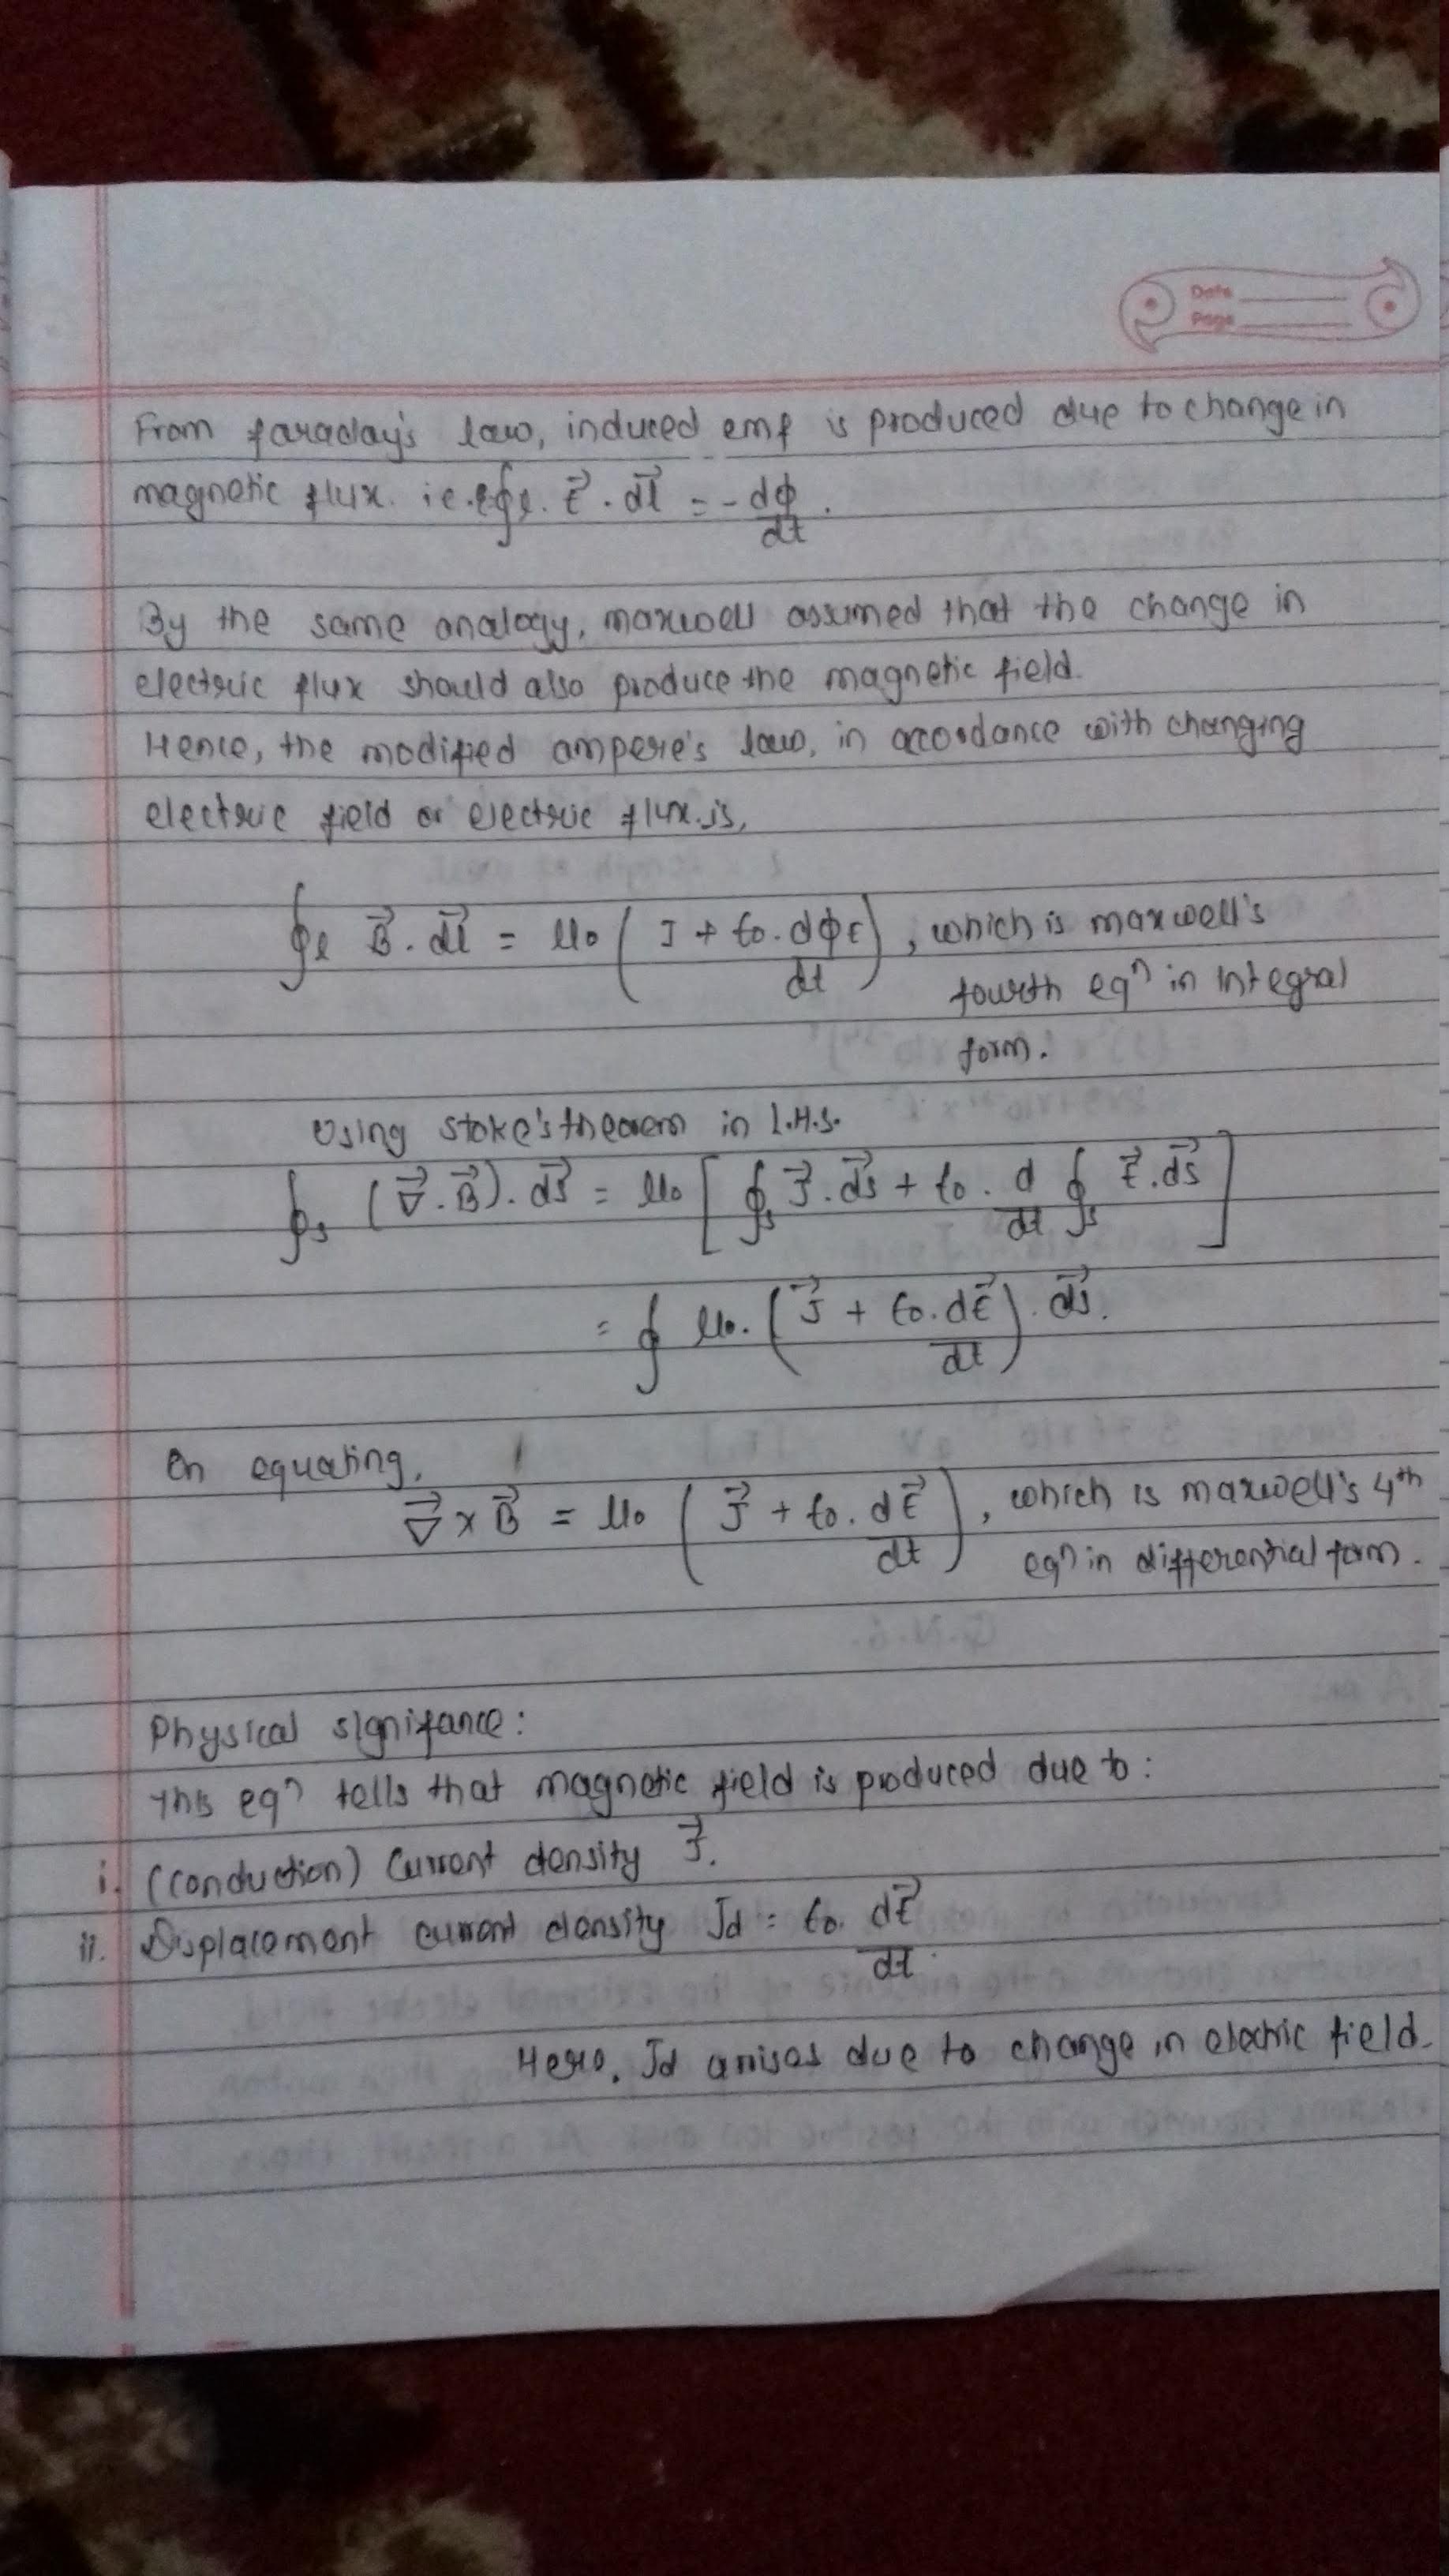 Date
Page
From faraday's law, induced emf is produced due to change in
magnetic flux. i.e. ∮l. E⃗ . dl⃗ = - dϕ/dt .
By the same analogy, maxwell assumed that the change in
electric flux should also produce the magnetic field.
Hence, the modified ampere's law, in accordance with changing
electric field or electric flux is,
∮l B⃗ . dl⃗ = μ0 ( I + ε0 . dϕE/dt ) , which is maxwell's
fourth eqⁿ in Integral
form.
Using stoke's theorem in L.H.S.
∮s (∇⃗ . B⃗) . ds⃗ = μ0 [ ∮s J⃗ . ds⃗ + ε0 . d/dt ∮s E⃗ . ds⃗ ]
= ∮ μ0 . ( J⃗ + ε0 . dE⃗/dt ) . ds⃗ .
On equating,
∇⃗ × B⃗ = μ0 ( J⃗ + ε0 . dE⃗/dt ) , which is maxwell's 4th
eqⁿ in differential form.
Physical signifance :
This eqⁿ tells that magnetic field is produced due to :
i. (conduction) Current density J⃗ .
ii. Displacement current density Jd = ε0 . dE⃗/dt .
Here, Jd arises due to change in electric field.